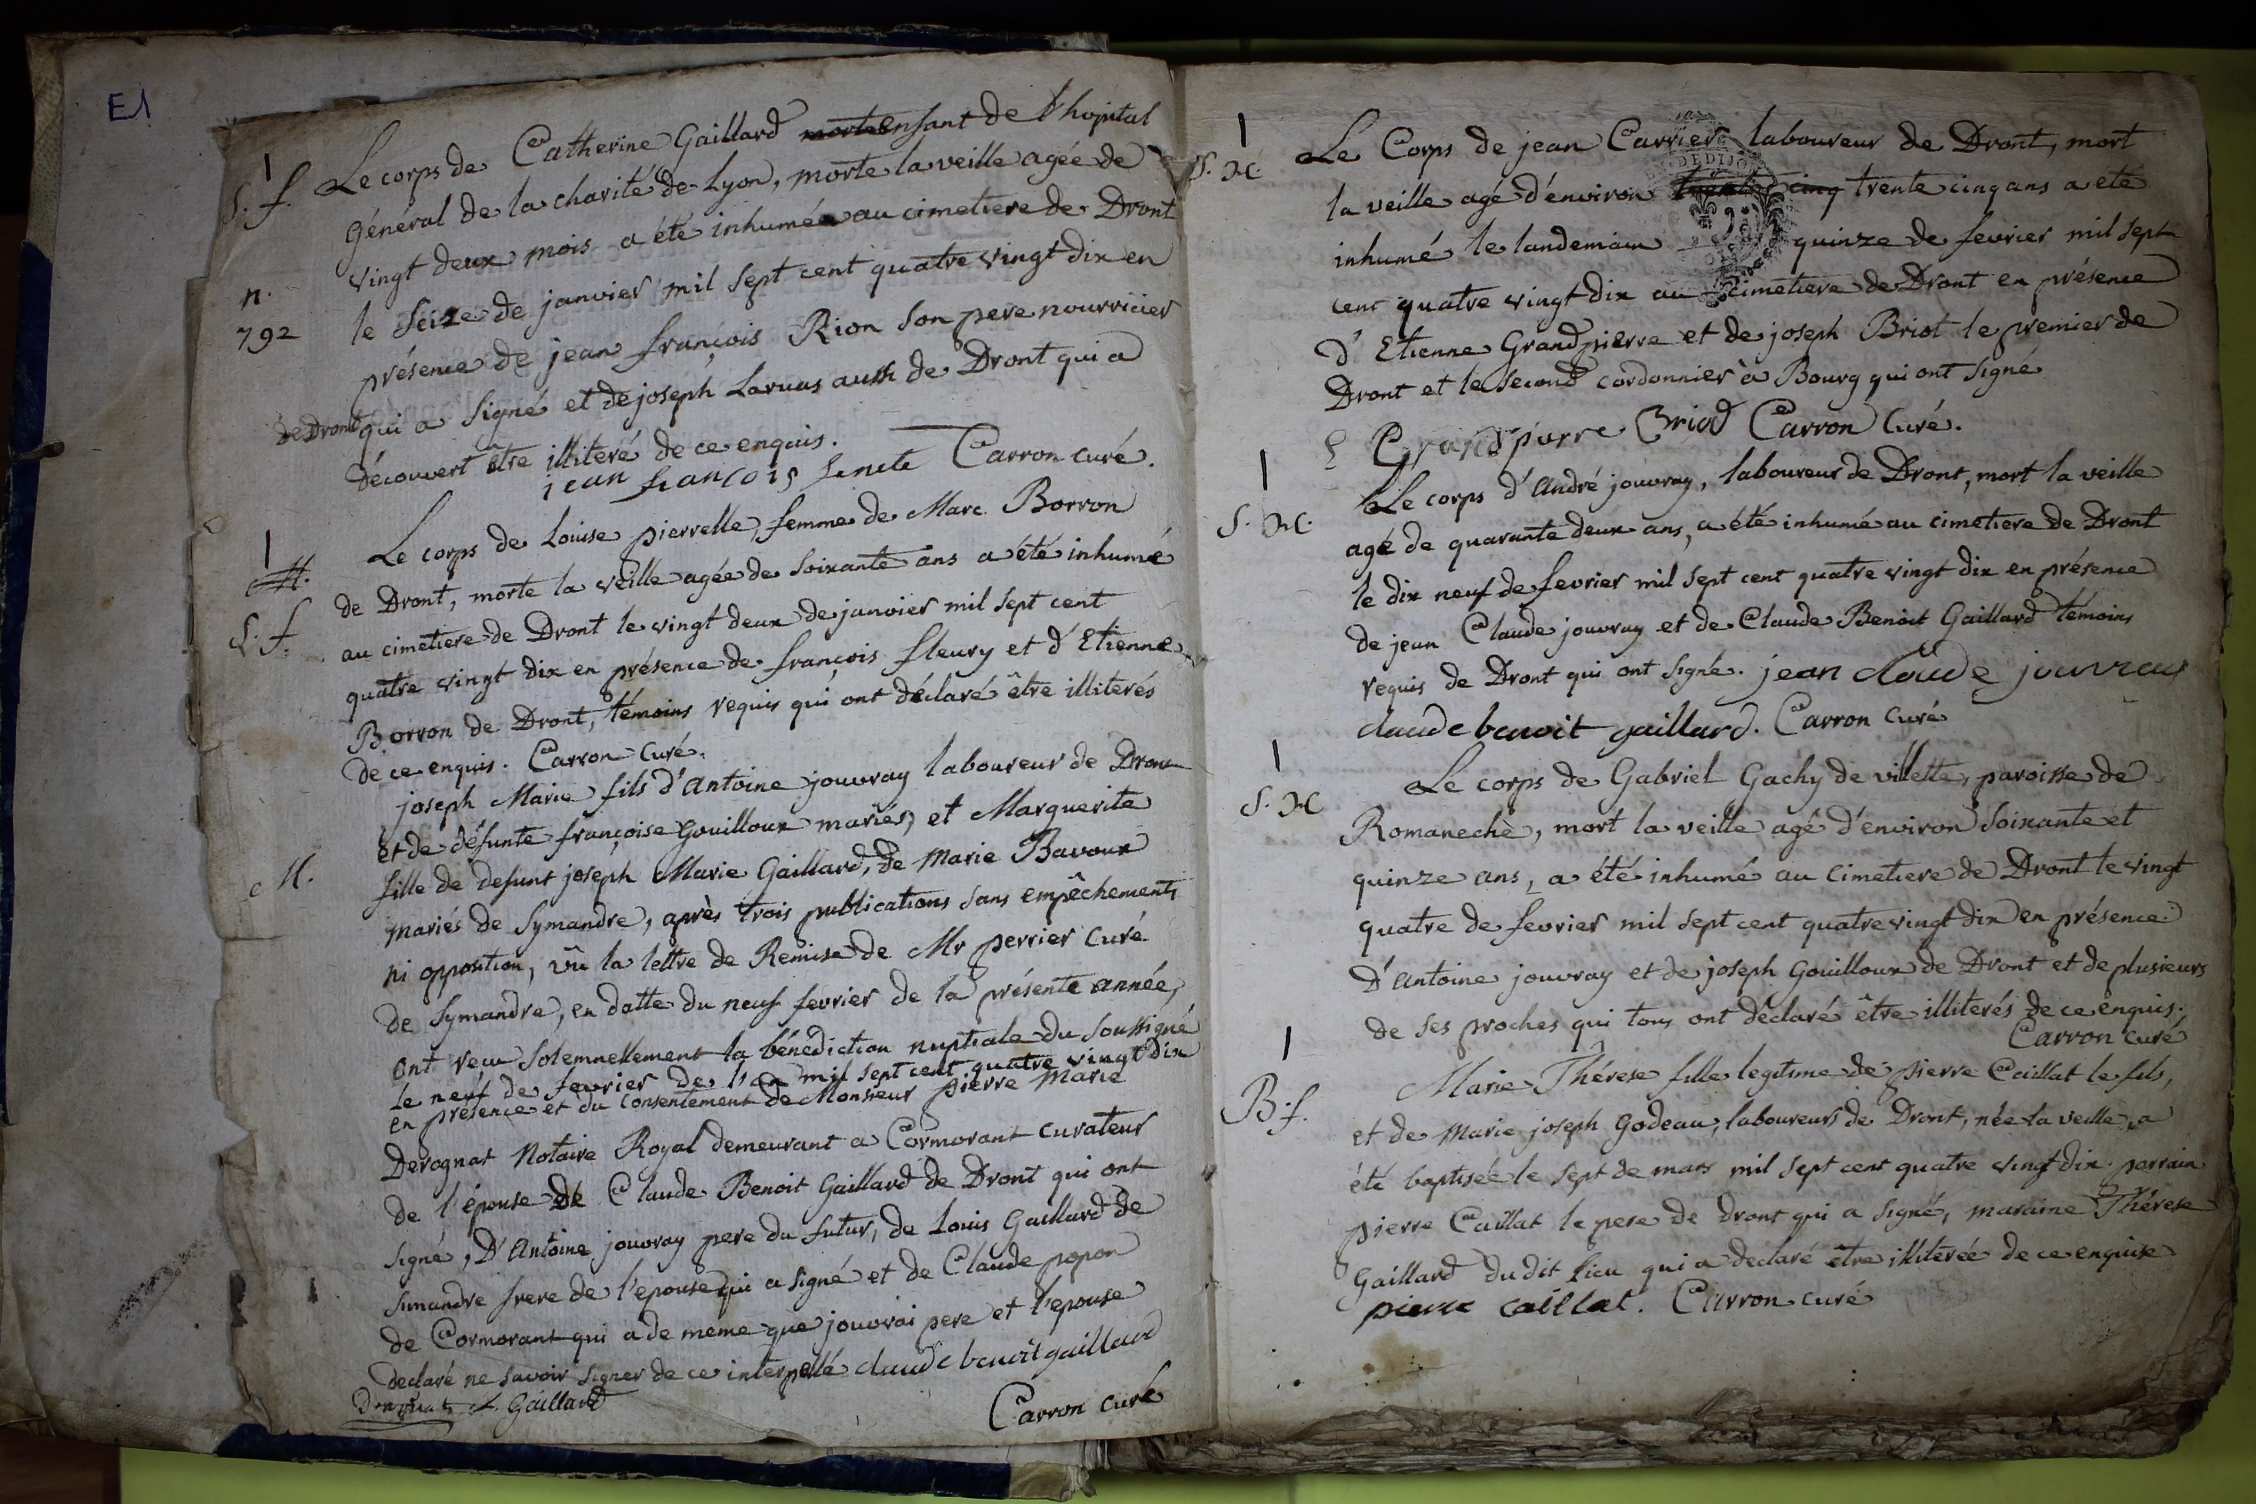 E1
S. f. Le corps de Catherine Gaillard enfant de l'hopital
Général de la charité de Lyon, morte la veille agée de
vingt deux mois a été inhumée au cimetiere de Dront
n. 792 le seize de janvier mil sept cent quatre vingt dix en
présence de jean françois Rion son pere nourricier
de Dront qui a signé et de joseph Laruas aussi de Dront qui a
découvert être illiteré de ce enquis.
jean francois Carron curé.
Le corps de Louise pierrelle, femme de Marc Borron
S. f. de Dront, morte la veille agée de soixante ans a été inhumé
au cimetiere de Dront le vingt deux de janvier mil sept cent
quatre vingt dix en présence de françois fleury et d'Etienne
Borron de Dront, témoins requis qui ont déclaré être illiterés
de ce enquis. Carron curé.
joseph Marie fils d'antoine jouvray laboureur de Dront
et de défunte françoise Gouilloux mariés, et Marguerite
M. fille de defunt joseph Marie Gaillard, de Marie Bavoux
mariés de Symandre, après trois publications sans empêchements
ni opposition, vû la lettre de Remise de Mr perrier Curé
de Symandre, en datte du neuf fevrier de la présente année,
ont recu solemnellement la bénédiction nuptiale du soussigné
le neuf de fevrier de l'an mil sept cent quatre vingt dix
en présence et du consentement de Monsieur pierre Marie
Derognat Notaire Royal demeurant a Cormorant curateur
de l'épouse de Claude Benoit Gaillard de Dront qui ont
signé, D'antoine jouvray pere du futur, de Louis Gaillard de
Simandre frere de l'epouse qui a signé et de Claude popon
de Cormorant qui a de meme que jouvrai pere et l'epouse
declaré ne savoir signer de ce interpellé claude benoit gaillard
Derognat L. Gaillard
Carron curé
S. M. Le Corps de jean Carrier laboureur de Dront, mort
la veille agé d'environ cinq trente cinq ans a eté
inhumé le landemain quinze de fevrier mil sept
cent quatre vingt dix au cimetiere de Dront en présence
d'Etienne Grandpierre et de joseph Briot le premier de
Dront et le second cordonnier à Bourg qui ont signé
E Grandpierre Briod Carron Curé.
S. M. Le corps d'andré jouvray, laboureur de Dront, mort la veille
agé de quarante deux ans, a été inhumé au cimetiere de Dront
le dix neuf de fevrier mil sept cent quatre vingt dix en présence
de jean Claude jouvray et de Claude Benoit Gaillard témoins
requis de Dront qui ont signé. jean claude jouvray
claude benoit gaillard. Carron Curé
S. M. Le corps de Gabriel Gachy de villette, paroisse de
Romanechè, mort la veille agé d'environ soixante et
quinze ans, a été inhumé au Cimetiere de Dront le vingt
quatre de fevrier mil sept cent quatre vingt dix en présence
D'antoine jouvray et de joseph Gouilloux de Dront et de plusieurs
de ses proches qui tous ont déclaré être illiterés de ce enquis.
Carron Curé
B. f. Marie Thérese fille legitime de pierre Caillat le fils,
et de Marie joseph Godeau, laboureurs de Dront, née la veille, a
été baptisée le sept de mars mil sept cent quatre vingt dix. parrain
pierre Caillat le pere de dront qui a signé, maraine Thérese
Gaillard du dit lieu qui a declaré être illiterée de ce enquise
pierre caillat. Carron curé